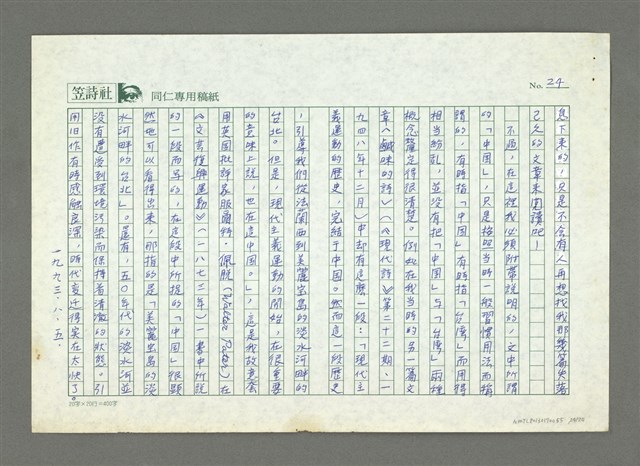 笠詩社 同仁專用稿紙
No. 24
息下來的,只是不會有人再想找我那幾篇失落
已久的文章來閱讀吧!
不過,在這裡我必須附帶說明的,文中所謂
的「中国」,只是按照当時一般習慣用法而指
謂的,有時指「中国」有時指「台湾」而用得
相当紛亂,並沒有把「中國」与「台湾」兩種
概念釐定得很清楚。例如在我当時的另一篇文
章《鹹味的詩》(《現代詩》第二十二期、一
九四八年十二月)中却有這麼一段:「現代主
義運動的歷史,完結于中国。然而這一段歷史
,引導我們從法蘭西到美麗宝島的淡水河畔的
台北。但是,現代主義運動的開始,在很重要
的意味上說,也在這中国。」,這是我故意套
用英国批評家服爾特·佩脫(Walter Pater)在
《文言復興運動》(一八七三年)一書中所說
的一段而写的,在這段中所提的「中国」很顯
然地可以看得出來,那指的是「美麗宝島的淡
水河畔的台北」。還有,五〇年代的淡水河並
沒有遭受到環境污染而保持着清澈的狀態。引
用旧作有時感触良深,時代変迁得实在太快了。
一九九三、八、五、
20字×20行=400字